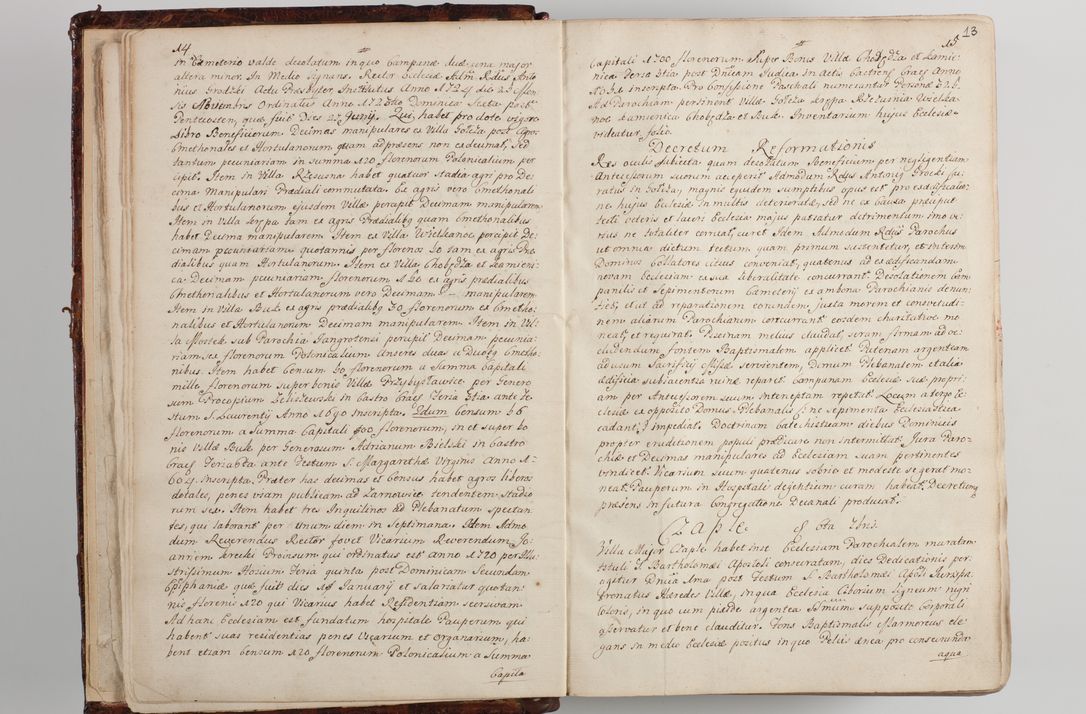 14
in Cæmeterio valde desolatum in quo Campanæ duæ una major
altera minor. In Medio Signans. Rector Ecclesiæ Adm. Rdus Anto
nius Grodzki Actu Presbyter, Institutus Anno 1724 die 23
sis Novembris Ordinatus Anno 172 Dominica Sexta post
Pentecosten, quæ fuit Dies 27 Junij. Qui habet pro dote vigore
Libro Beneficiorum Decimas manipulares ex Villa Gołcza post
Cmethonales et Hortulanorum quam ad præsens non exdeimat, Sed
tantum pecuniariam in summa 120 florenorum Polonicalium per
cipit. Item in Villa Rzesusna habet quatuor stadia agri pro De
cima Manipulari Prædiali commutata. Ex agris vero Cmethonali
bus et Hortulanorum ejusdem Villæ percipit Decimam manipularem
Item in Villa tam ex agris Prædialibq quam Cmethonalibus
habet Decima manipularem. Item ex Villa Wielkanoc percipit De
cimam pecuniariam quotannis per florenos 20 tam ex agris Præ
dialibus quam Hortulanorum. Item ex Villa Chobędza et Kamieni
ca Decimam pecuniariam florenorum 120 ex agris prædialibus
Cmethonalibus et Hortulanorum vero Decimam manipularem
Item in Villa Buk ex agris prædialibq 30 florenorum ex Cmetho
nalibus et Hortulanorum Decimam manipularem. Item in Vil
la Mostek sub Parochia Jangrotensi percipit Decimam pecunia
riam sex florenorum Polonicalium anseres duas a Duobq Cmetho
nibus. Item habet Censum 50 florenorum a Summa Capitali
mille florenorum super bonis Villæ Przybysławice per Genero
sum Procopium Zeliszewski in Castro Crac Feria 3tia ante Fe
stum S. Laurentij Anno 1690 Inscripta. Edum Censum 56
florenorum a Summa Capitali 800 florenorum, in et super bo
nis Villæ Buk per Generosum Adrianum Bielski in Castro
Crac Feria 6ta ante Festum S. Margarethæ Virginis Anno 1
604 Inscripta. Præter has decimas et Census habet agros liberos
dotales, penes viam publicam ad Zarnowiec tendentem Stadio
rum sex. Item habet tres Inquilinos ad Plebanatum spectan
tes, qui laborant per unum diem in Septimana. Idem Admo
dum Reverendus Rector fovet Vicarium Reverendum Jo
annem Krecki Proinsum qui ordinatus est anno 1720 per Illu
strissimum Hosium Feria quinta post Dominicam Secundam
Epiphaniæ quæ fuit dies 25 January et salariatur quotan
nis florenis 120 qui Vicarius habet Residentiam seorsivam
Ad hanc Ecclesiam est fundatum hospitale Pauperum qui
habent suas residentias penes Vicarium et Organarium, ha
bent etiam Censum 120 florenorum Polonicalium a Summa
Capita
15
13
Capitali 1700 florenorum super Bonis Villæ Chobędza et Kamie
nica Feria 3tia post Dnicam Judica in Actis Castrens Crac Anno
inscripta. Pro Confessione Paschali numerantur Personæ
Ad Parochiam pertinent Villæ Gołcza Rzeżusnia Wielka
noc Kamienica Chobędza et Buk. Inventarium hujus Ecclesiæ
videatur folio.
Decretum Reformationis
Res oculis subiecta quam desolatum Beneficium per negligentiam
Antecessorum suorum acceperit Admodum Rdus Antonig Grocki Cu
ratus in Gołcza, magnis ejusdem sumptibus opus est pro exædificatio
ne hujus Ecclesiæ in multis deterioratæ, sed ne ex causa præcipue
tecti veteris et lauri Ecclesia majus patiatur detrimentum imo ve
rius ne totaliter corruat, curet Idem Admodum Rdus Parochus
ut omnia dictum tectum quam primum sustentetur, et interim
Dominos Collatores citius conveniat, quatenus ad exædificandam
novam Ecclesiam ex sua liberalitate concurrant Desolationem Cam
panilis et Sepimentorum Cæmeterij ex ambona Parochianis denun
tiet, et ut ad reparationem eorundem juxta morem et consvetudi
nem aliarum Parochianum concurrant eosdem charitative mo
neat, et requirat. Piscinam melius claudat, seram firmam ad oc
cludendum fontem Baptismalem applicet Patenam argenteam
ad usum Sacrificij Missæ servientem, Domum Plebanalem et alia
ædificia subiacentia ruinæ reparet. Campanam Ecclesiæ suæ propri
am per Antecessorem suum interceptam repetat. Locum a tergo Ec
clesiæ ex opposito Domus Plebanalis sine sepimenta Ecclesiastica
cadant, impediat. Doctrinam Catechisticam diebus Dominicis
propter eruditionem populi prædicare non intermittat. Jura Paro
chiæ et Decimas manipulares ad Ecclesiam suam pertinentes
vindicet. Vicarium suum quatenus sobrie et modeste se gerat mo
neat. Pauperum in Hospitali degentium curam habeat. Decretumq
præsens in futura Congregatione Decanali producat.
Czaple 8va 7bris
Villa Major Czaple habet in se Ecclesiam Parochialem muratam
tituli S. Bartholomæi Apostoli consecratam, dies Dedicationis per
agetur Dnica 1ma post Festum S. Bartholomæi Apost. Juris pa
tronatus Hæredes Villæ, in qua Ecclesia Ciborium ligneum nigri
coloris, in quo cum pixide argentea SSmum supposito Corporali
asservatur et bene clauditur. Fons Baptismalis Marmoreus ele
gans in medio Ecclesiæ positus in quo Pelvis ænea pro conservanda
aqua